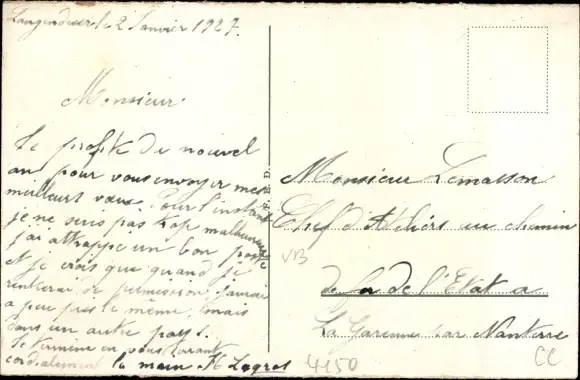 le 2 Janvier 1927.
Monsieur
Je profite du nouvel
an pour vous envoyer mes
meilleurs vœux. Pour l'instant
je ne suis pas trop malheureux
j'ai attrappé un bon poste
et je crois que quand je
rentrerai de permission j'aurai
a peu près le même, mais
dans un autre pays.
Je termine en vous serrant
cordialement la main H Lagret
P. E. D.
Monsieur Lemasson
Chef d'Ateliers au chemin
de fer de l'Etat a
La Garenne par Nanterre
VB
4150
CC